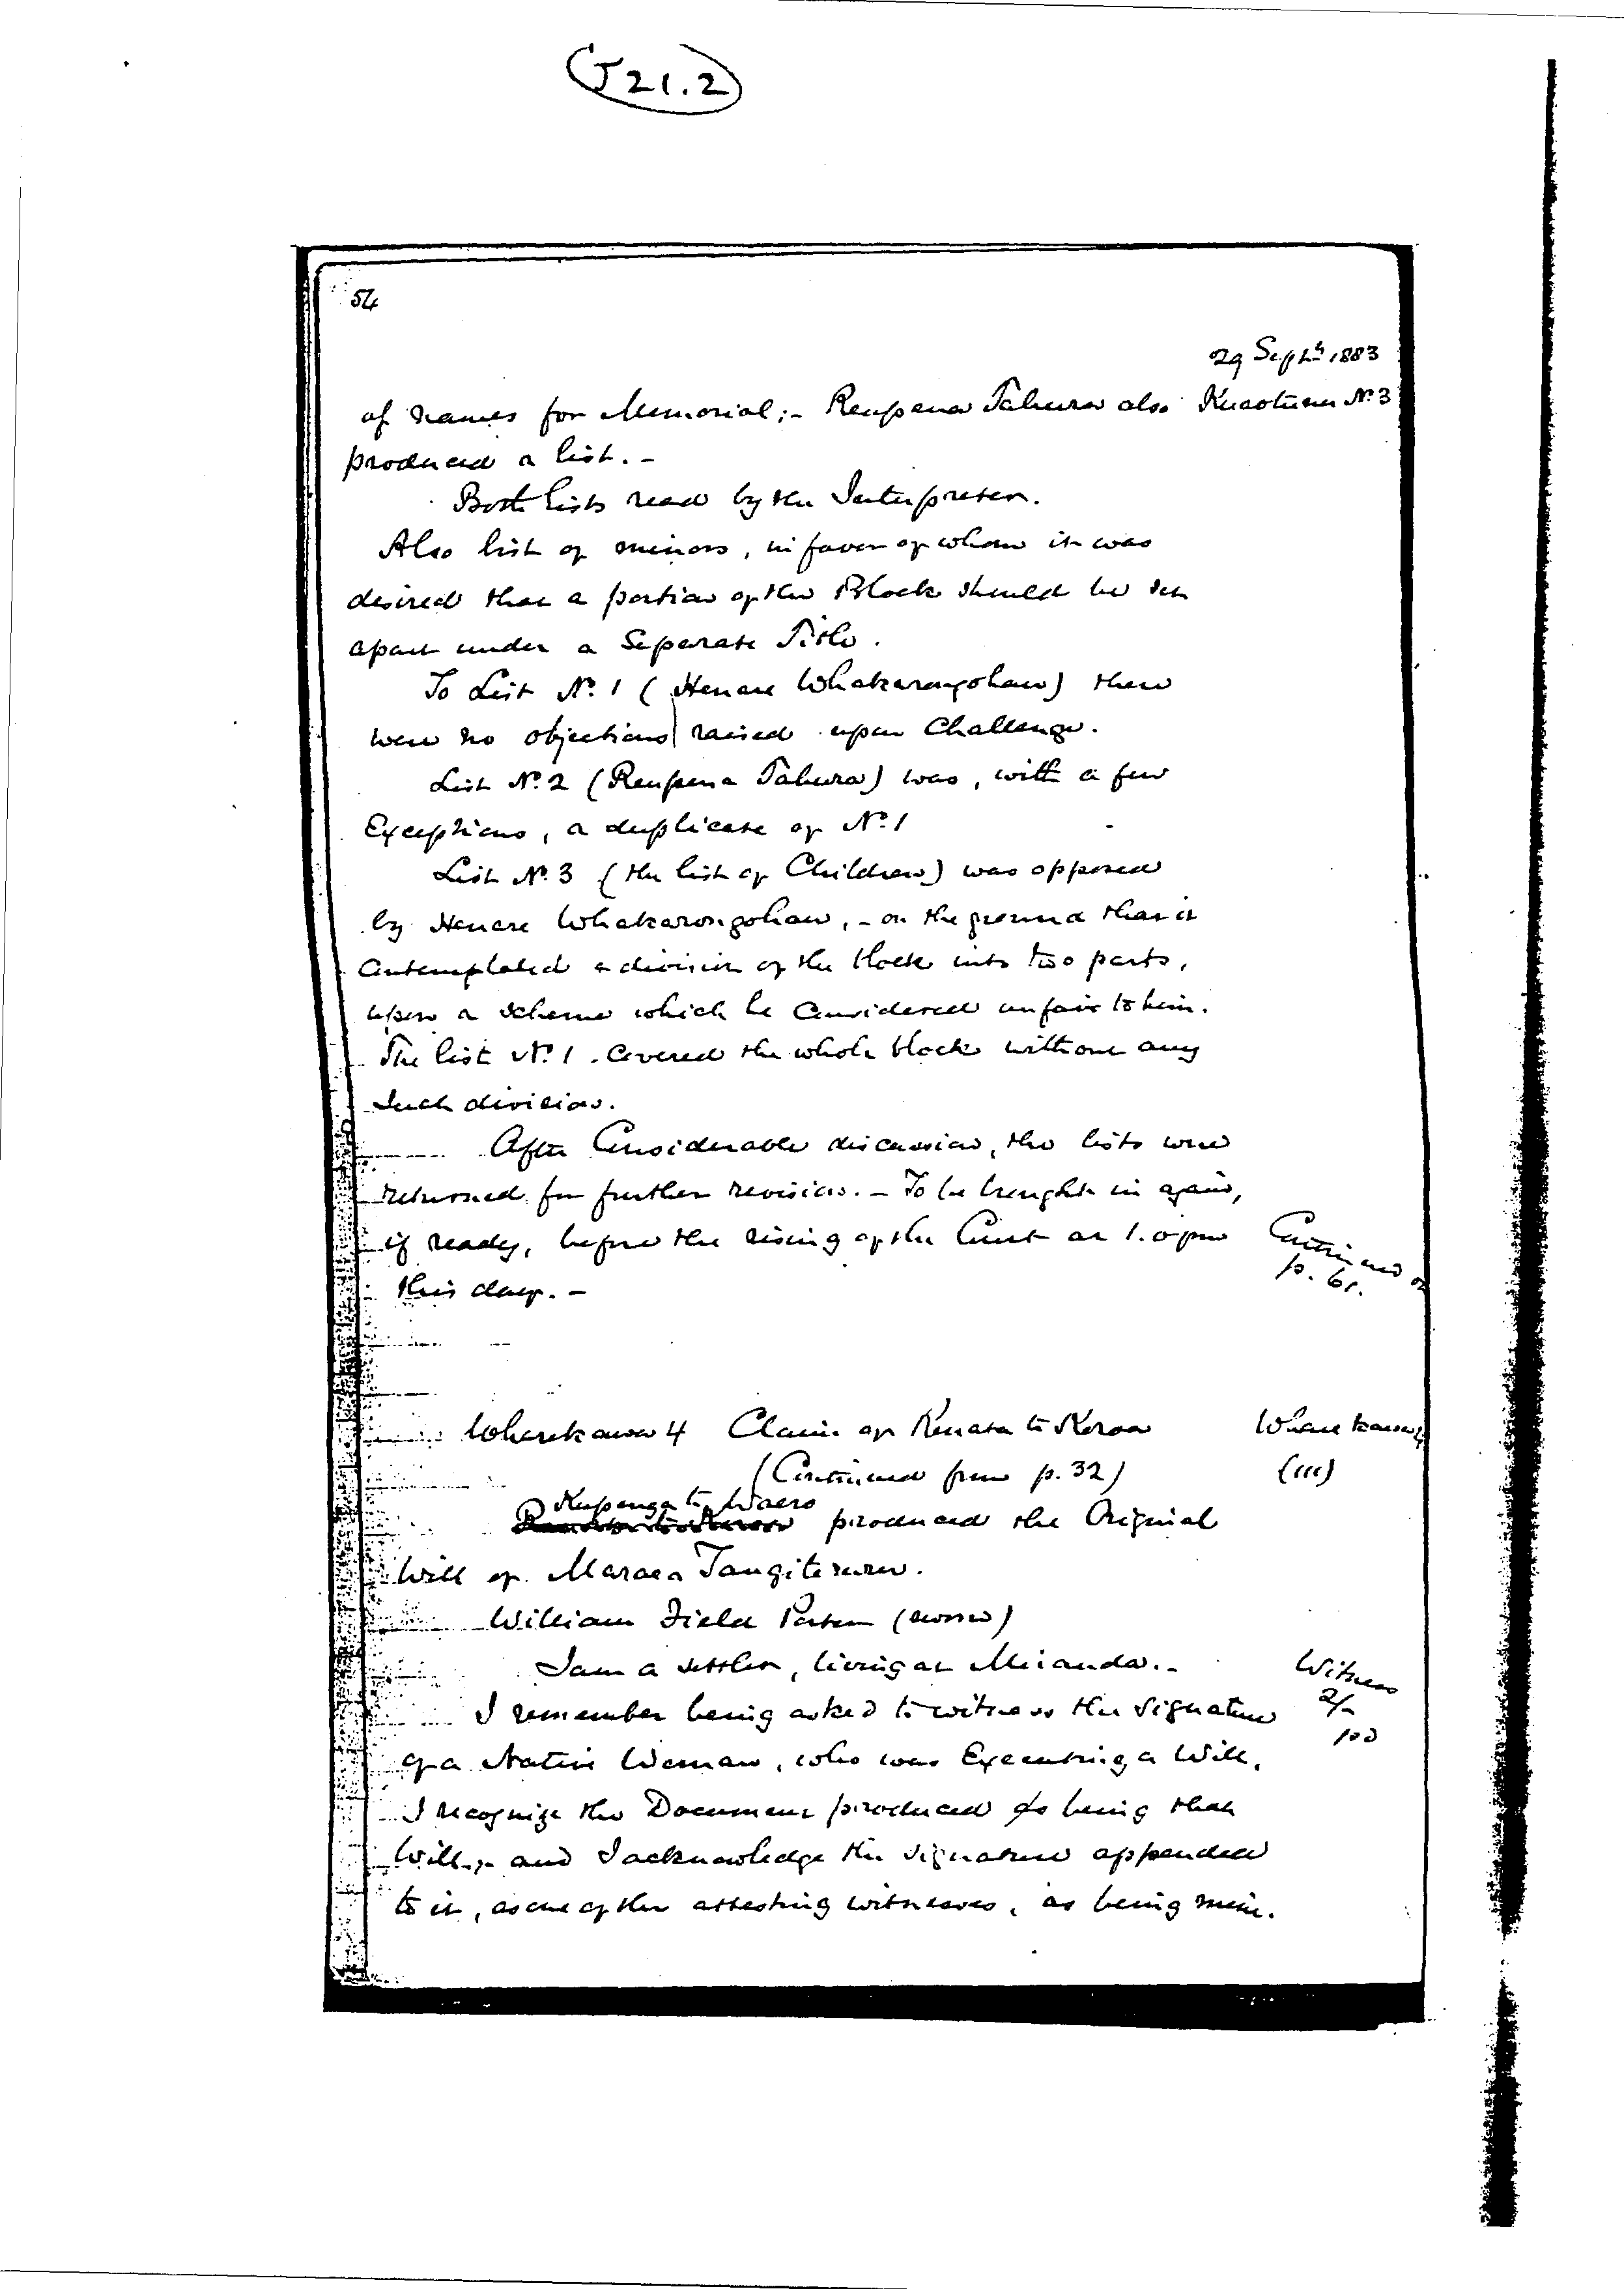 J21.2
54
29 Septr 1883
of names for Memorial;- Reupena Tahura also Kuaotunu No. 3
produced a list. -
Both lists read by the Interpreter.
Also list of minors, in favor of whom it was
desired that a portion of the Block should be set
apart under a Separate Title.
To List No. 1 (Henare Whakarongohau) there
were no objections raised upon Challenge.
List No. 2 (Reupena Tahura) was, with a few
Exceptions, a duplicate of No. 1
List No. 3 (the list of Children) was opposed
by Henare Whakarongohau, - on the ground that it
Contemplated a division of the block into two parts,
upon a scheme which he Considered unfair to him.
The list No. 1. Covered the whole block without any
such division.
After Considerable discussion, the lists were
returned for further revision. - To be brought in again,
if ready, before the rising of the Court at 1.0 pm
this day. -
Continued on
p. 61.
Wharekawa 4 Claim of Renata te
Wharekawa 4
(Continued from p. 32)
(111)
Kupenga te Waero
produced the Original
Will of Maraea Tangiteruru.
William Field Porter (sworn)
I am a settler, living at Miranda. -
Witness
2/-
pd
I remember being asked to witness the signature
of a Native Woman, who was Executing a Will.
I recognize the Document produced as being that
Will;- and I acknowledge the signature appended
to it, as one of the attesting witnesses, as being mine.